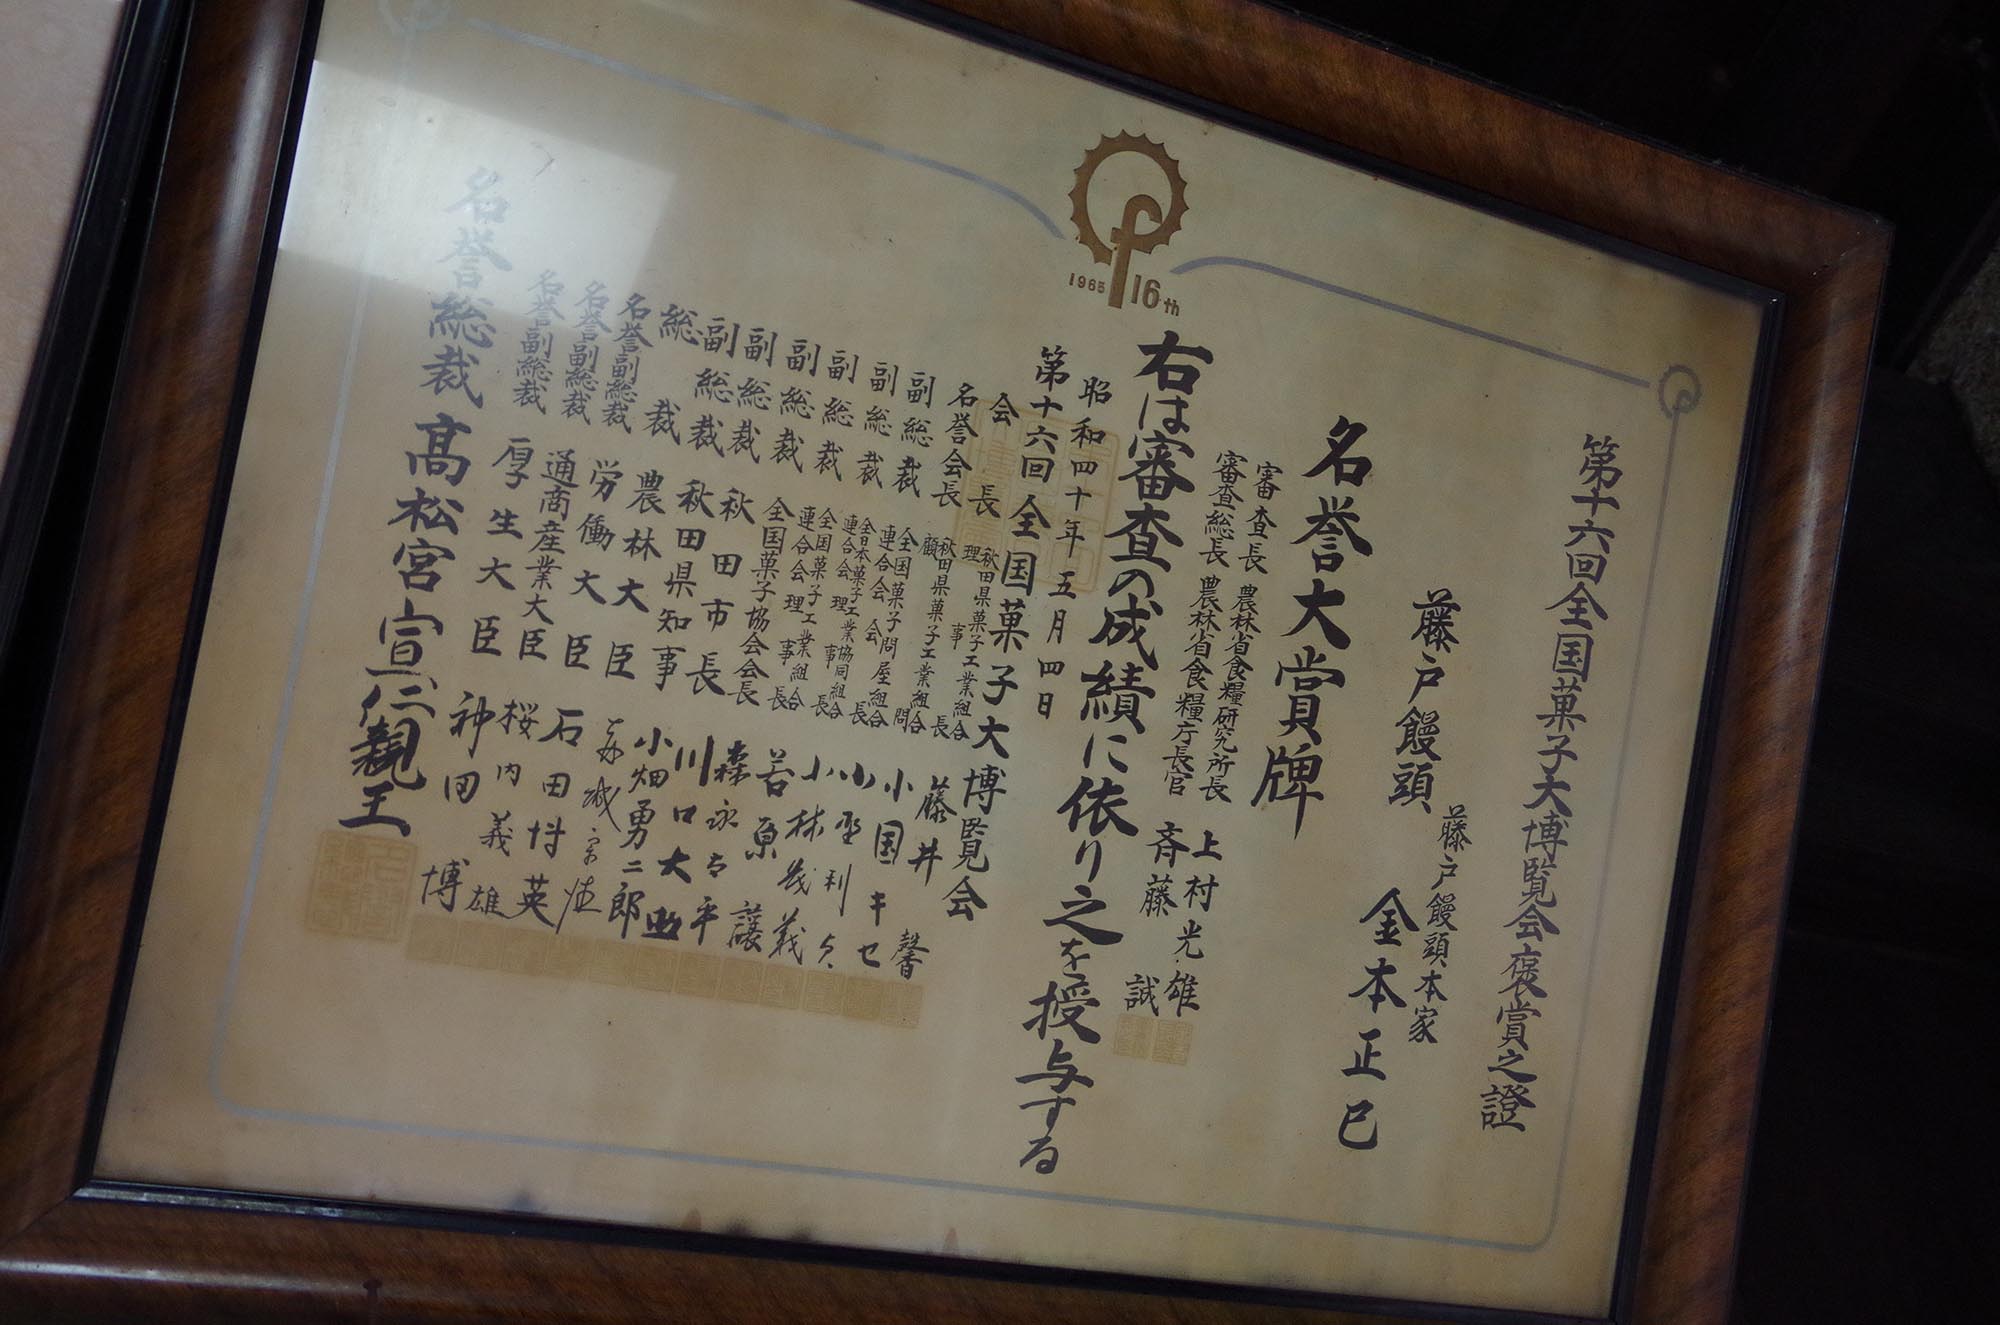 1965 16th
第十六回全国菓子大博覧会褒賞之證
藤戸饅頭
藤戸饅頭本家
金本正巳
名誉大賞牌
審査長 農林省食糧研究所長 上村光雄
審査総長 農林省食糧庁長官 斉藤誠
右は審査の成績に依り之を授与する
昭和四十年五月四日
第十六回全国菓子大博覧会
会長 秋田県菓子工業組合理事長 藤井馨
名誉会長 秋田県菓子工業組合顧問 小国キセ
副総裁 全国菓子問屋組合連合会会長
副総裁 全日本菓子工業協同組合連合会理事長 小林茂義
副総裁 全国菓子工業組合連合会理事長 若原譲
副総裁 全国菓子協会会長 森永太平
副総裁 秋田市長 川口大助
副総裁 秋田県知事 小畑勇二郎
総裁 農林大臣 赤城宗徳
名誉副総裁 労働大臣 石田博英
名誉副総裁 通商産業大臣 桜内義雄
名誉副総裁 厚生大臣 神田博
名誉総裁 高松宮宣仁親王